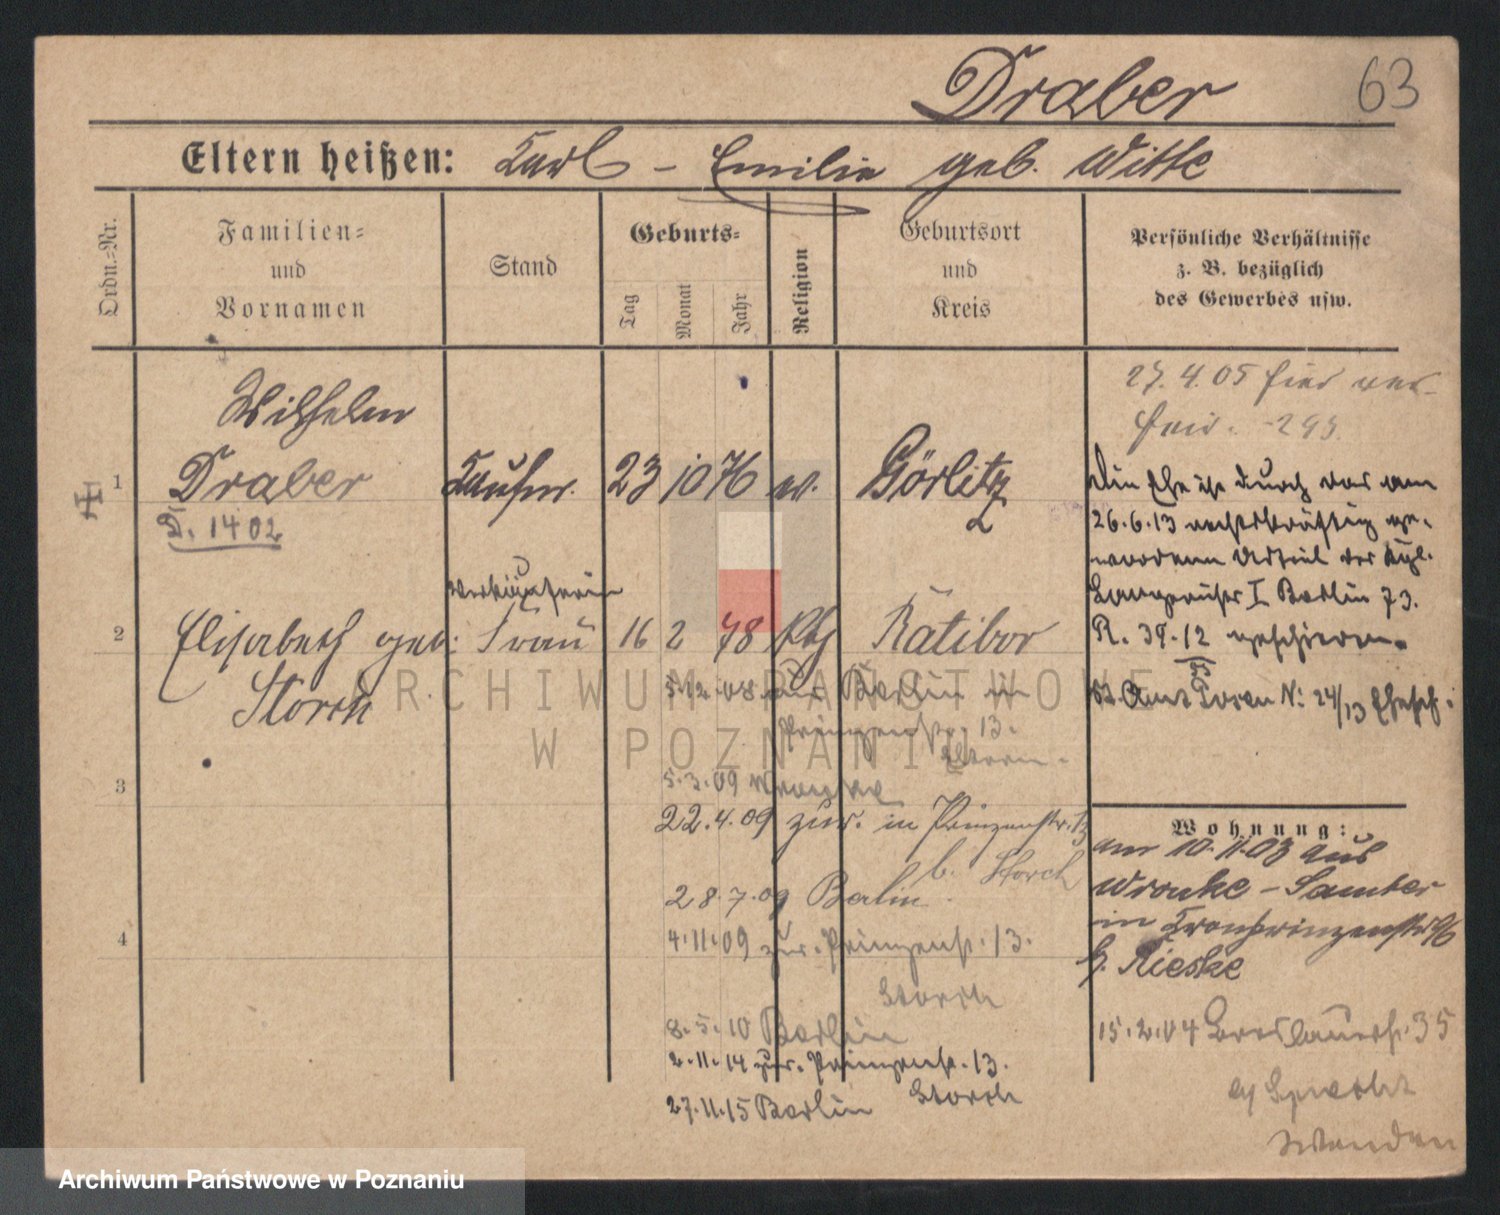 Draber
63
Eltern heißen: Karl – Emilie geb. Witte
Ordn.-Nr.
Familien-
und
Vornamen
Stand
Geburts-
Tag
Monat
Jahr
Religion
Geburtsort
und
Kreis
Persönliche Verhältnisse
z. B. bezüglich
des Gewerbes usw.
27.4.05 hier ver-
heir. 295.
1
Wilhelm
Draber
Kaufm.
23
10
76
ev.
Görlitz
D. 1402
Die Ehe ist durch das am
26.6.13 rechtskräftig ge-
wordene Urteil des Kgl.
Landgerichts I Berlin 73.
R. 39.12 geschieden.
St. Amt Posen N: 24/13 Ehesch.
2
Verkäuferin
Elisabeth geb. Frau
16
2
78
kth
Ratibor
Storch
5.12.08 aus Berlin in
Prinzenstr. 13.
3
5.3.09 Wronke
22.4.09 zur. in Prinzenstr. 13
b. Storch
28.7.09 Berlin
4
4.11.09 zur. Prinzenst. 13.
Storch
8.5.10 Berlin
2.11.14 zur. Prinzenst. 13.
Storch
27.11.15 Berlin
Wohnung:
am 10.11.03 aus
Wronke – Samter
in Kronprinzenstr.
b. Rieske
15.2.04 Breslauerst. 35
b/ Specht
ARCHIWUM PAŃSTWOWE
W POZNANIU
Archiwum Państwowe w Poznaniu